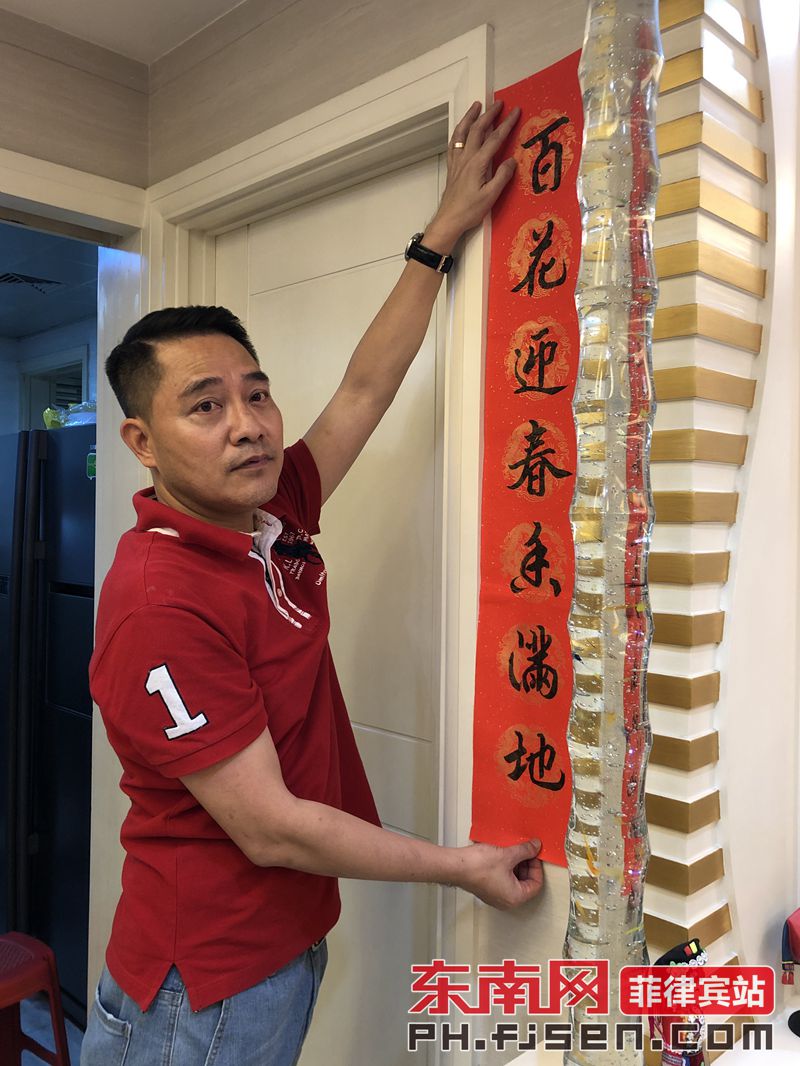 百花迎春香满地
1
东南网 菲律宾站
PH.fjsen.com